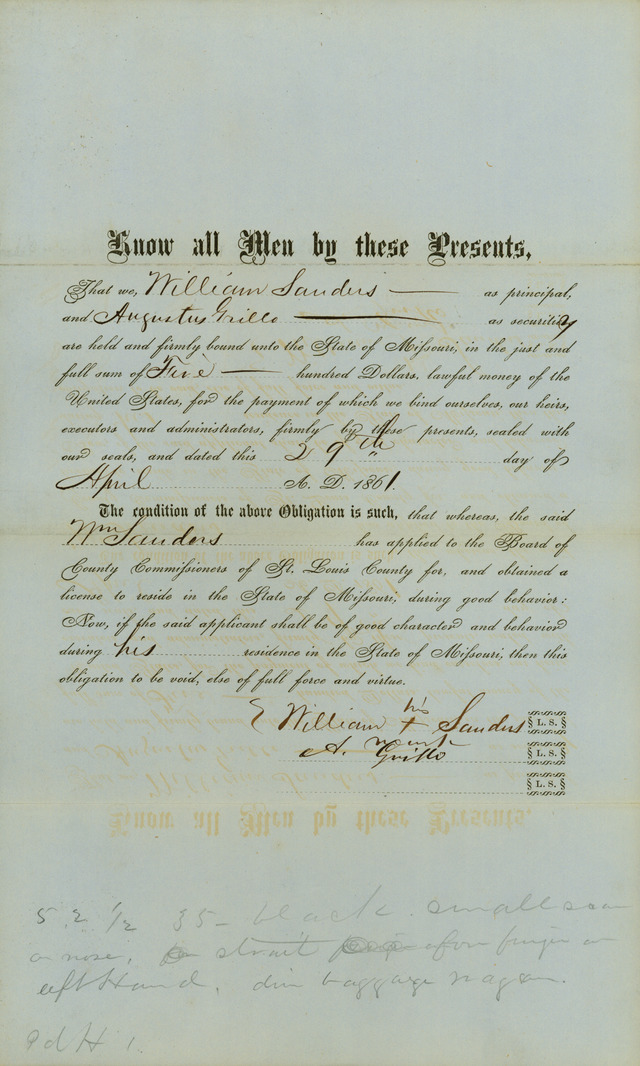 Know all Men by these Presents,
That we, William Sanders as principal,
and Augustus Grillo as security
are held and firmly bound unto the State of Missouri, in the just and
full sum of Five hundred Dollars, lawful money of the
United States, for the payment of which we bind ourselves, our heirs,
executors and administrators, firmly by these presents, sealed with
our seals, and dated this 29th day of
April A. D. 1861.
The condition of the above Obligation is such, that whereas, the said
Wm Sanders has applied to the Board of
County Commissioners of St. Louis County for, and obtained a
license to reside in the State of Missouri, during good behavior:
Now, if the said applicant shall be of good character and behavior
during his residence in the State of Missouri, then this
obligation to be void, else of full force and virtue.
his
William + Sanders L. S.
mark
A. Grillo L. S.
L. S.
5.2 1/2 35 - black. small scar
on nose, strait fore finger on
left Hand, baggage wagon.
Pd H 1.